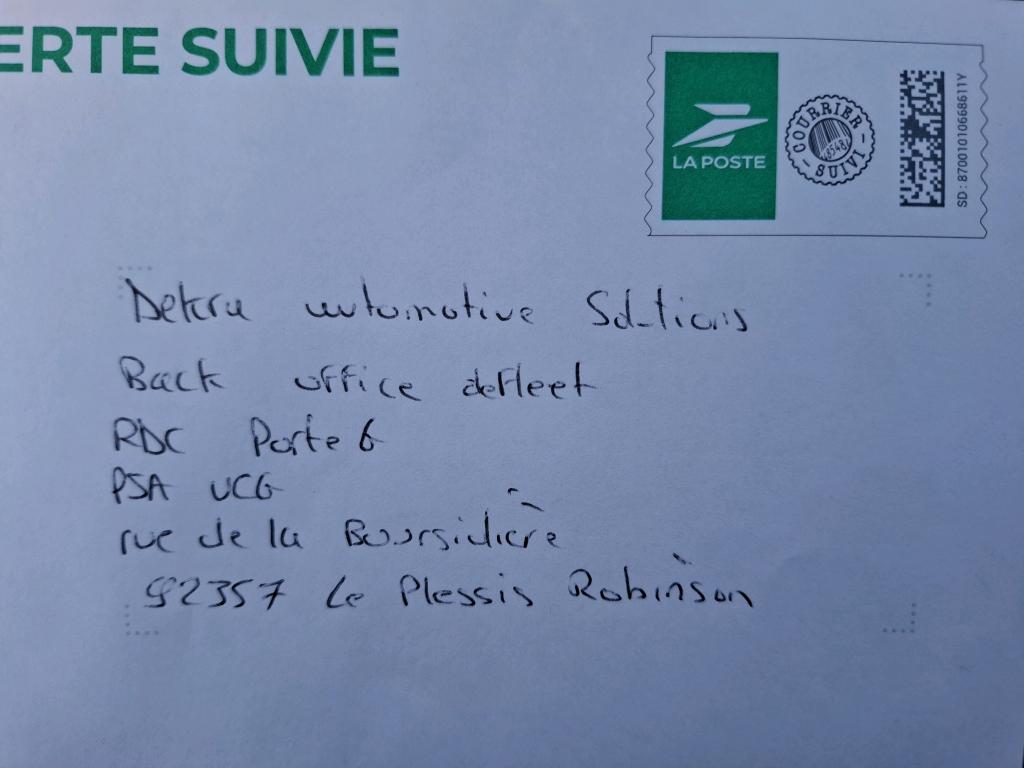 ERTE SUIVIE
LA POSTE
COURRIER
8548
SUIVI
SD : 87001010668611Y
Dekra automotive Solutions
Back office defleet
RDC Porte 6
PSA UCG
rue de la Boursidière
92357 Le Plessis Robinson